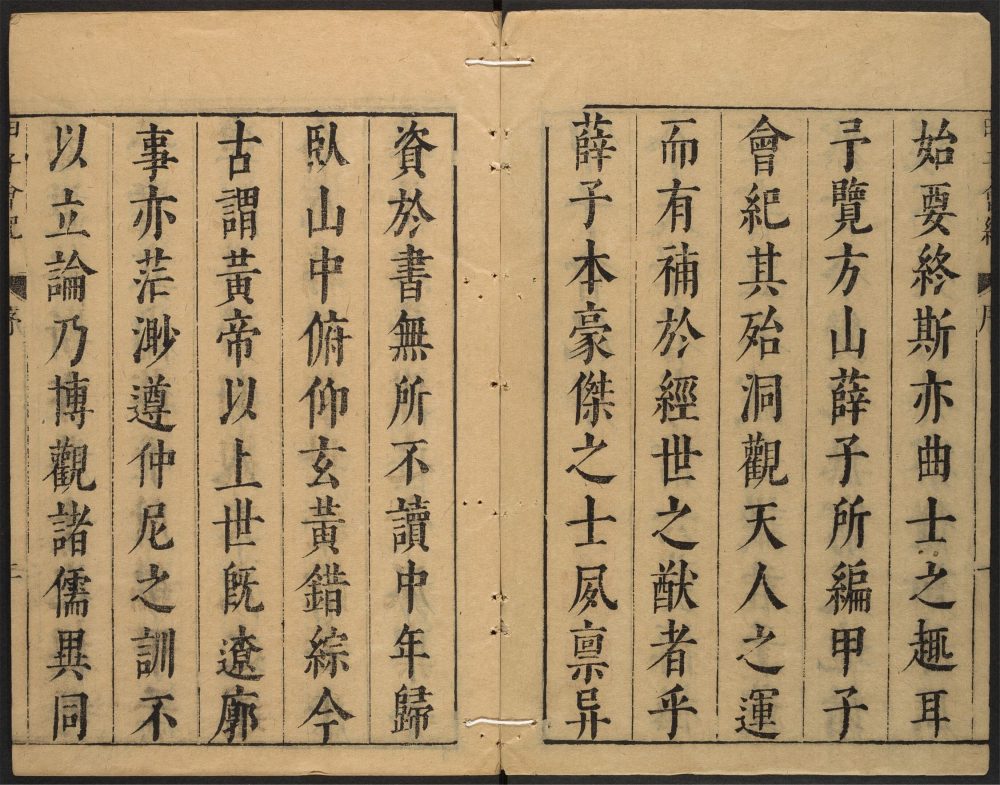 始要終斯亦曲士之趣耳
予覽方山薛子所編甲子
會紀其殆洞觀天人之運
而有補於經世之猷者乎
薛子本豪傑之士夙禀异
資於書無所不讀中年歸
臥山中俯仰玄黃錯綜今
古謂黃帝以上世既遼廓
事亦茫渺遵仲尼之訓不
以立論乃博觀諸儒異同
甲子會紀
序